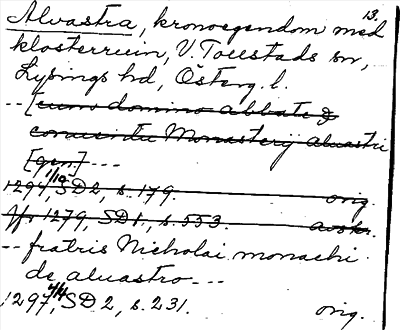 13.
Alvastra, kronoegendom med
klosterruin, V. Tollstads sn,
Lysings hd, Österg. l.
-- [cum domino abbate &
conuentu Monasterij aluastri
[gen.] ---
1297 1/10, SD 2, s. 179. orig.
Jfr 1279, SD 1, s. 553. avskr.
-- fratris Nicholai monachi
de aluastro ---
1297 4/4, SD 2, s. 231. orig.